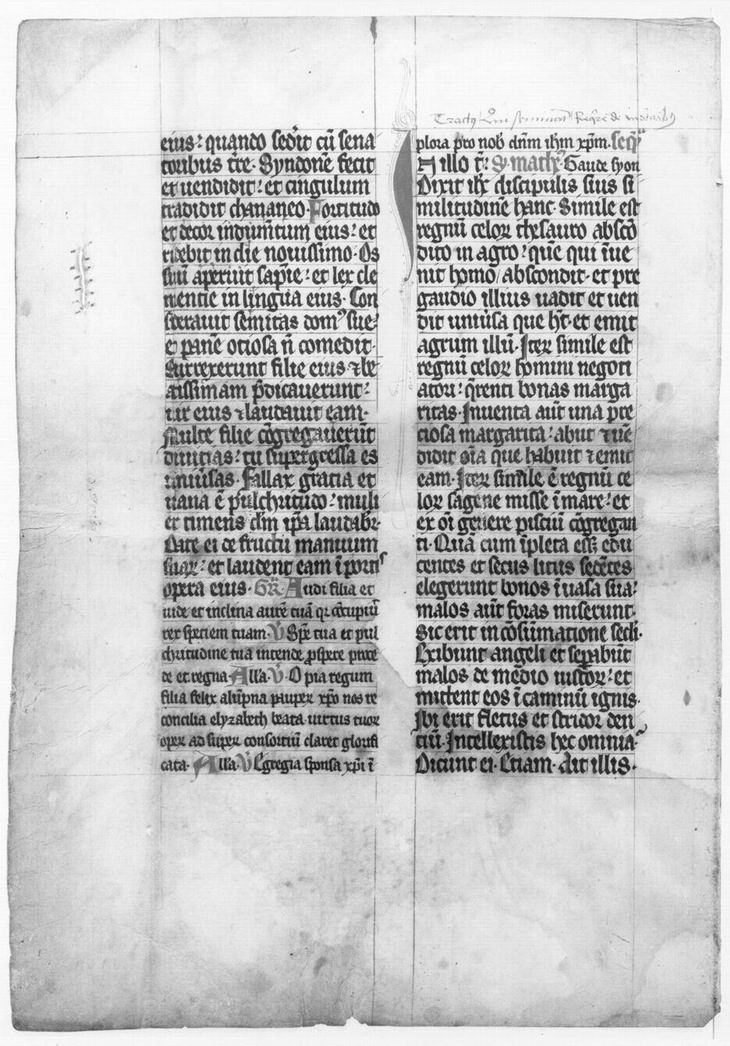 Tractus Qui seminant Require de
eius: quando sederit cu sena
toribus tre. Syndone fecit
et uendidit: et cingulum
tradidit chananeo. Fortitudo
et decor indumtum eius: et
ridebit in die nouissimo. Os
suu aperuit sapie: et lex cle
mentie in lingua eius. Con
siderauit semitas dom9 sue:
et pane otiosa n comedit.
Surrexerunt filie eius ⁊ be
atissimam pdicauerunt:
uir eius ⁊ laudauit eam.
Multe filie cogregauerut
diuitias: tu supergressa es
uniusas. Fallax gratia et
uana e pulchritudo: muli
er timens dm ipa laudabr.
Date ei de fructu manuum
suar: et laudent eam i portis
opera eius. Gr. Audi filia et
uide et inclina aure tua qr cocupiu
rex speciem tuam. V Spe tua et pul
chritudine tua intende pspere proce
de et regna Alla. V. O pia regum
filia felix alupna pauper xpo nos re
concilia elyzabeth beata uirtus tuor
oper ad super consortiu claret glorifi
cata. Alla. V Egregia sponsa xpi i
plora pro nob dnm ihm xpm. seq
In illo t: S matheu Gaude syon
Dixit ihc discipulis suis si
militudine hanc. Simile est
regnu celor thesauro absco
dito in agro: que qui iue
nit homo abscondit. et pre
gaudio illius uadit et uen
dit uniusa que ht. et emit
agrum illu. Iter simile est
regnu celor homini negoti
atori: qrenti bonas marga
ritas. Inuenta aut una pre
ciosa margarita: abiit ⁊ ue
didit oia que habuit ⁊ emit
eam. Iter simile e regnu ce
lor sagene misse i mare: et
ex oi genere pisciu cogregan
ti. Qua cum ipleta esset edu
centes et secus litus sedetes
elegerunt bonos i uasa sua:
malos aut foras miserunt.
Sic erit in cosumatione secli.
Exibunt angeli et sepabut
malos de medio iustor: et
mittent eos i caminu ignis.
Ibi erit fletus et stridor den
tiu. Intellexistis hec omnia
Dicunt ei. Etiam. Ait illis.